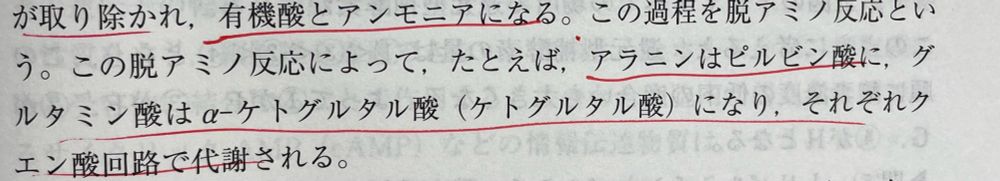 が取り除かれ，有機酸とアンモニアになる。この過程を脱アミノ反応とい
う。この脱アミノ反応によって，たとえば，アラニンはピルビン酸に，グ
ルタミン酸はα-ケトグルタル酸（ケトグルタル酸）になり，それぞれク
エン酸回路で代謝される。